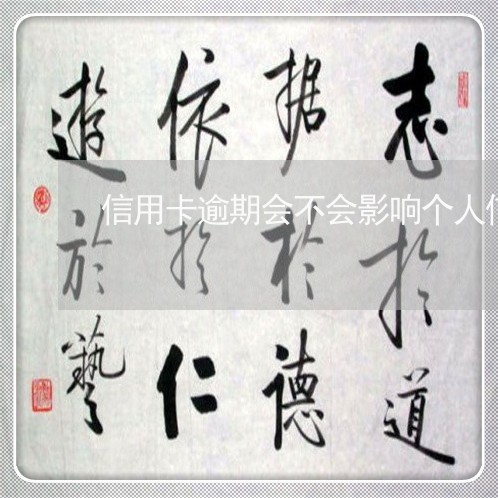 志於道
据於德
依於仁
遊於藝
信用卡逾期会不会影响个人